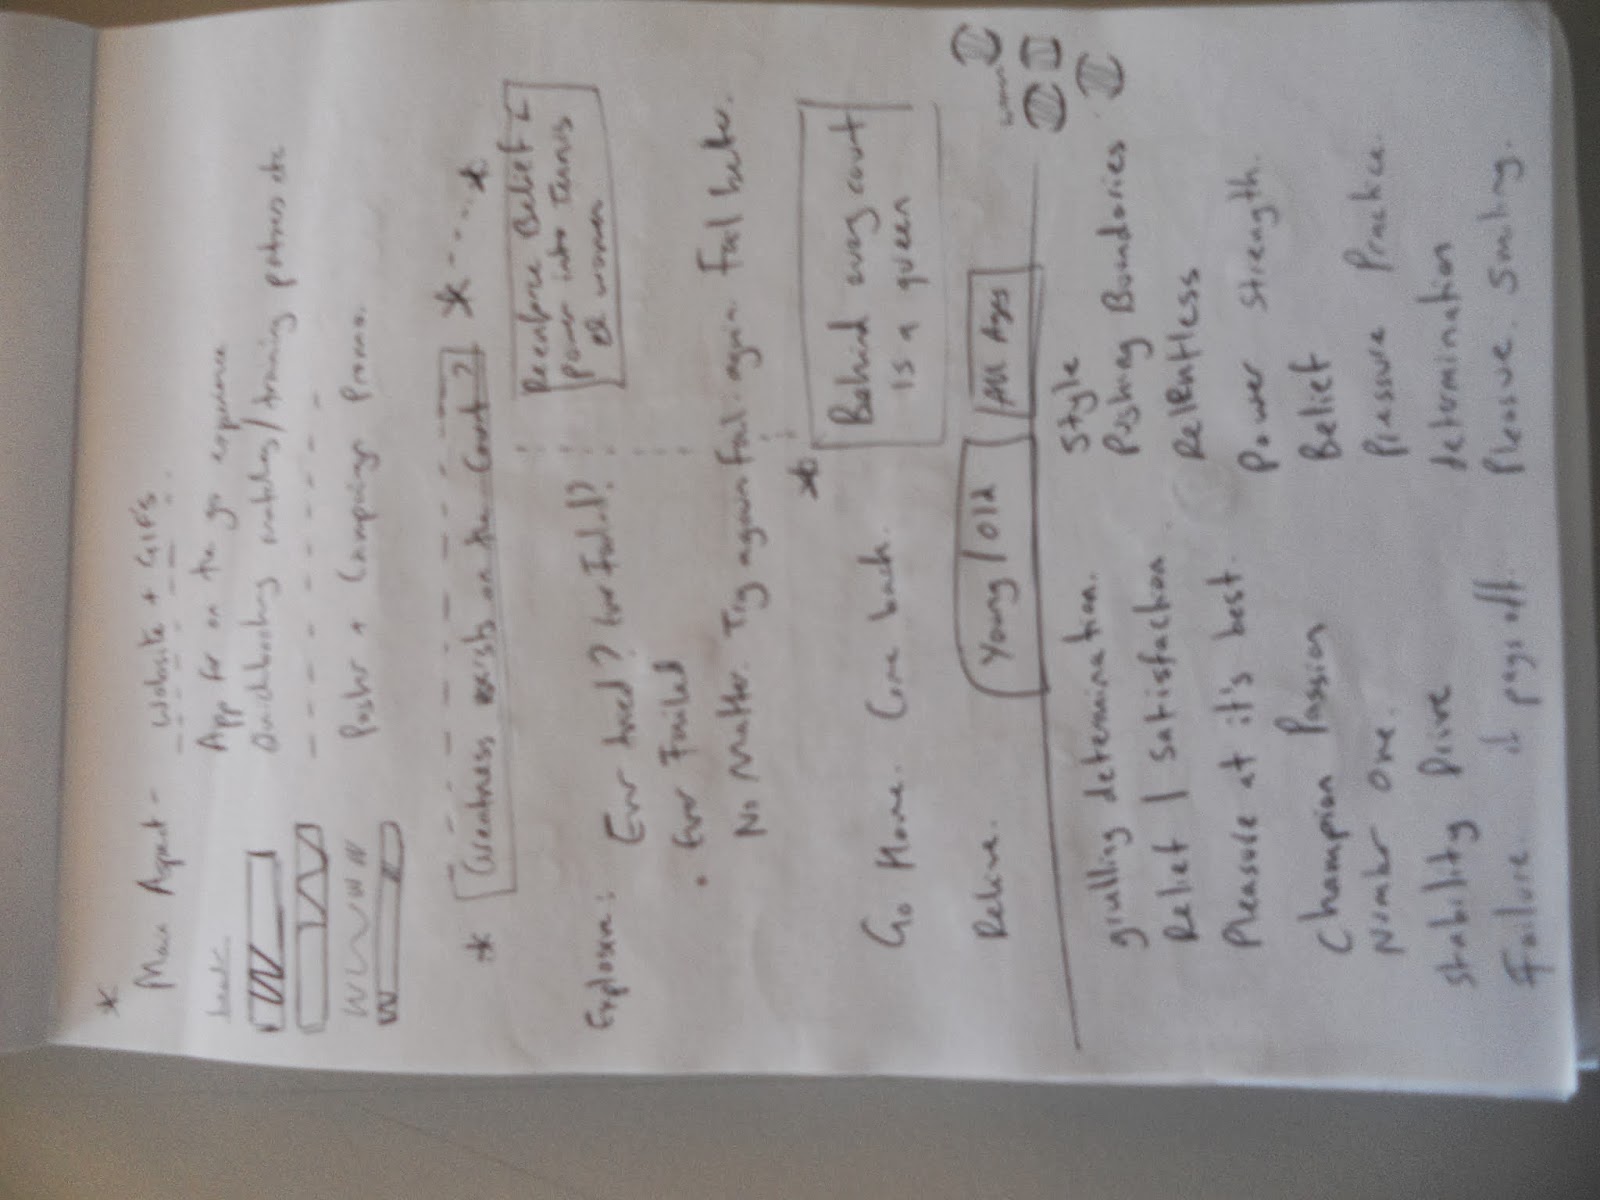 Main Aspect - Website + GIFs.
App for on the go experience
matches / training patners etc
Poster + Campaign Promo.
Greatness exists on the Court?
Reenforce Belief &
Power into Tennis
women
Explosion:
Ever tried? Ever Failed?
Ever Failed
No Matter. Try again Fail again Fail better.
Behind every court
is a queen
Go Home. Come back.
Relive.
Young / Old
All Ages
women
Style
grulling determination.
Pushing Boundaries
Relief / Satisfaction
Relentless
Pleasure at it's best.
Power Strength.
Champion Passion
Belief
Number One.
Pressure Practice.
Stability Drive
determination
Failure. it pays off.
Pleasure.